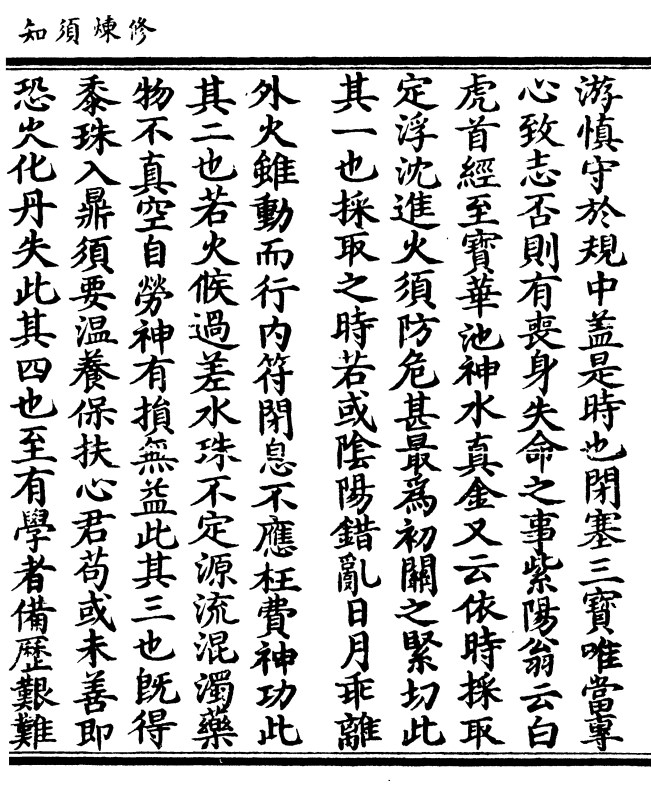 修煉須知
游慎守於規中蓋是時也閉塞三寶唯當專
心致志否則有喪身失命之事紫陽翁云白
虎首經至寶華池神水真金又云依時採取
定浮沈進火須防危甚最為初關之緊切此
其一也採取之時若或陰陽錯亂日月乖離
外火雖動而行內符閉息不應枉費神功此
其二也若火候過差水珠不定源流混濁藥
物不真空自勞神有損無益此其三也既得
黍珠入鼎須要温養保扶心君苟或未善即
恐火化丹失此其四也至有學者備歷艱難